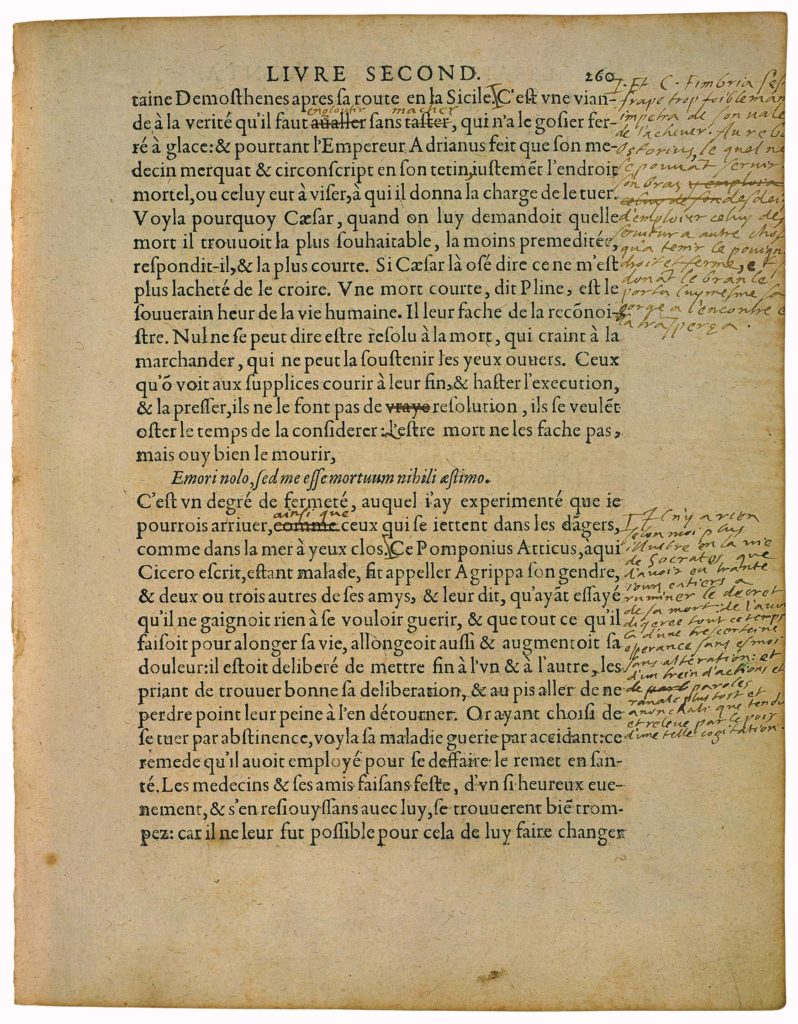 LIVRE SECOND. 260
taine Demosthenes apres sa route en la Sicile. C'est vne vian-
engloutir macher
de à la verité qu'il faut aualler sans taster, qui n'a le gosier fer-
ré à glace: & pourtant l'Empereur Adrianus feit que son me-
decin merquat & circonscript en son tetin, iustemẽt l'endroit
mortel, ou celuy eut à viser, à qui il donna la charge de le tuer.
Voyla pourquoy Cæsar, quand on luy demandoit quelle
mort il trouuoit la plus souhaitable, la moins premeditée,
respondit-il, & la plus courte. Si Cæsar l'à osé dire ce ne m'est
plus lacheté de le croire. Vne mort courte, dit Pline, est le
souuerain heur de la vie humaine. Il leur fache de la recõnoi-
stre. Nul ne se peut dire estre resolu à la mort, qui craint à la
marchander, qui ne peut la soustenir les yeux ouuers. Ceux
qu'õ voit aux supplices courir à leur fin, & haster l'execution,
& la presser, ils ne le font pas de vraye resolution, ils se veulẽt
oster le temps de la considerer: L'estre mort ne les fache pas,
mais ouy bien le mourir,
Emori nolo, sed me esse mortuum nihili æstimo.
C'est vn degré de fermeté, auquel i'ay experimenté que ie
ainsi que
pourrois arriuer, comme ceux qui se iettent dans les dãgers,
comme dans la mer à yeux clos. Ce Pomponius Atticus, à qui
Cicero escrit, estant malade, fit appeller Agrippa son gendre,
& deux ou trois autres de ses amys, & leur dit, qu'ayãt essayé
qu'il ne gaignoit rien à se vouloir guerir, & que tout ce qu'il
faisoit pour alonger sa vie, allongeoit aussi & augmentoit sa
douleur: il estoit deliberé de mettre fin à l'vn & à l'autre, les
priant de trouuer bonne sa deliberation, & au pis aller de ne
perdre point leur peine à l'en détourner. Or ayant choisi de
se tuer par abstinence, voyla sa maladie guerie par accidant: ce
remede qu'il auoit employé pour se deffaire le remet en san-
té. Les medecins & ses amis faisans feste, d'vn si heureux eue-
nement, & s'en resiouyssans auec luy, se trouuerent biẽ trom-
pez: car il ne leur fut possible pour cela de luy faire changer
Et C. Fimbria s'est
frapé trop foiblemant
impetra de son vale
de l'achever.
Ostorius, le quel ne
se pouuāt seruir
son bras
desdei
d'emploier celuy de
seruitur a autre chos
qu'a tenir le pouign
droit et ferme, e
donāt le branle
porta luymesme sa
gorge a l'encontre e
la trasperça.
Il n'y a rien
selon moi plus
illustre en la vie
de Socrates que
d'auoir eu trante
iours entiers a
ruminer le decret
de sa mort: de l'auoi
digeree tout ce temps
la d'une trescerteine
esperance sans esmoi
sans alteration: et
d'un trein d'actions et
de parolles
ravale plus tost et
anonchali que tendu
et releve par le pois
d'une telle cogitation.